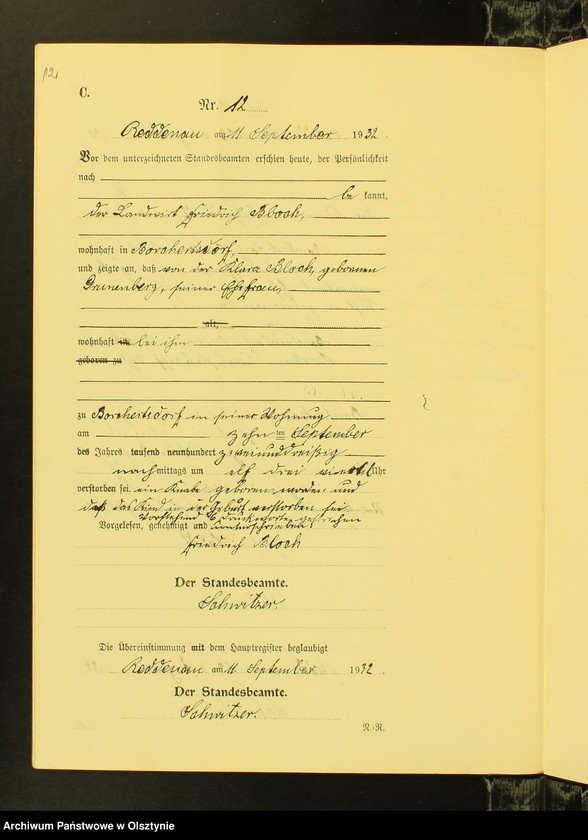 12
C.
Nr. 12
Reddenau am 11 September 1932.
Vor dem unterzeichneten Standesbeamten erschien heute, der Persönlichkeit
nach
be kannt,
der Landwirt Friedrich Bloch,
wohnhaft in Borchertsdorf,
und zeigte an, daß von der Klara Bloch, geborenen
Grunenberg, seiner Ehefrau,
alt,
wohnhaft in bei ihm
geboren zu
zu Borchertsdorf in seiner Wohnung
am zehn ten September
des Jahres tausend neunhundert zweiunddreißig
nachmittags um elf drei viertel Uhr
verstorben sei ein Knabe geboren worden und
daß das Kind in der Geburt verstorben sei
Vorstehend 6 Druckworte gestrichen
Vorgelesen, genehmigt und unterschrieben:
Friedrich Bloch
Der Standesbeamte.
Schwitzer.
Die Übereinstimmung mit dem Hauptregister beglaubigt
Reddenau am 11 September 1932.
Der Standesbeamte.
Schwitzer.
R.-R.
Archiwum Państwowe w Olsztynie